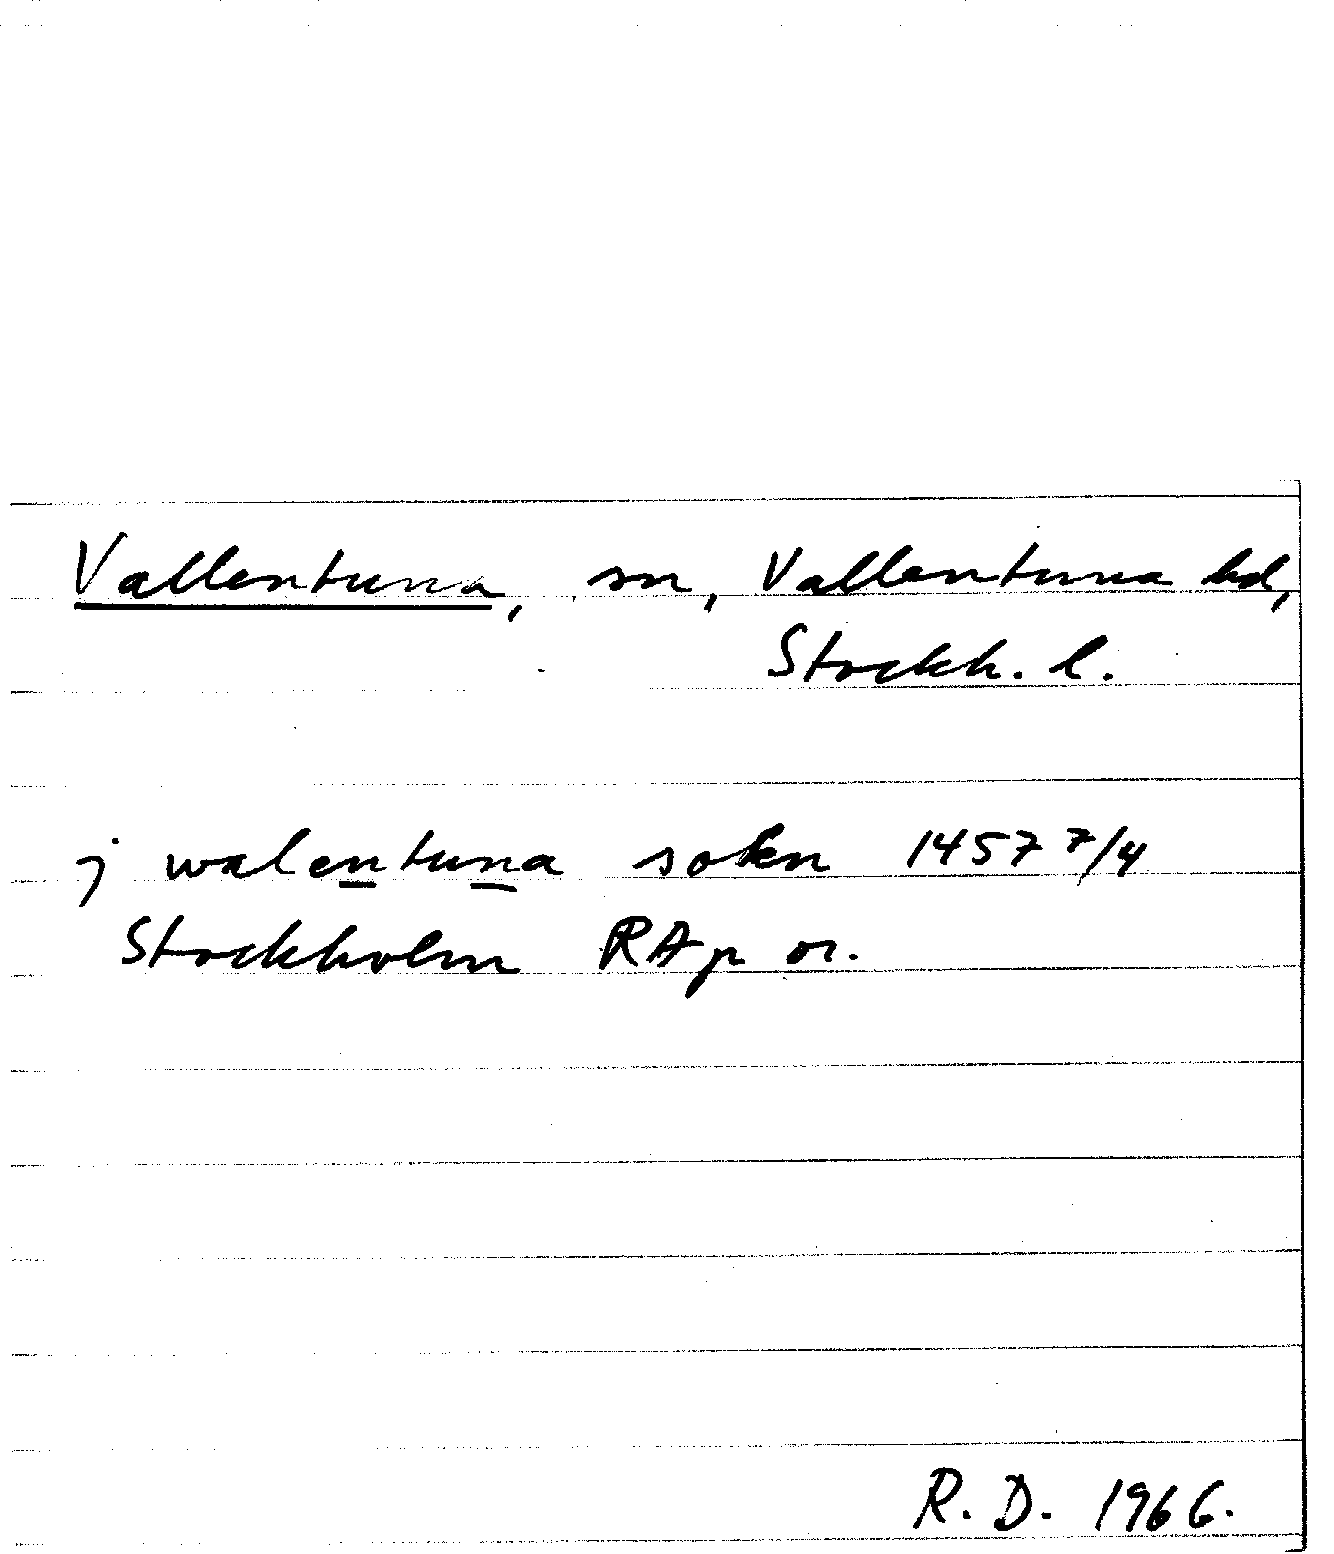 Vallentuna, sn, Vallentuna hd,
Stockh. l.
j walentuna sokn 1457 7/4
Stockholm RAp or.
R. D. 1966.